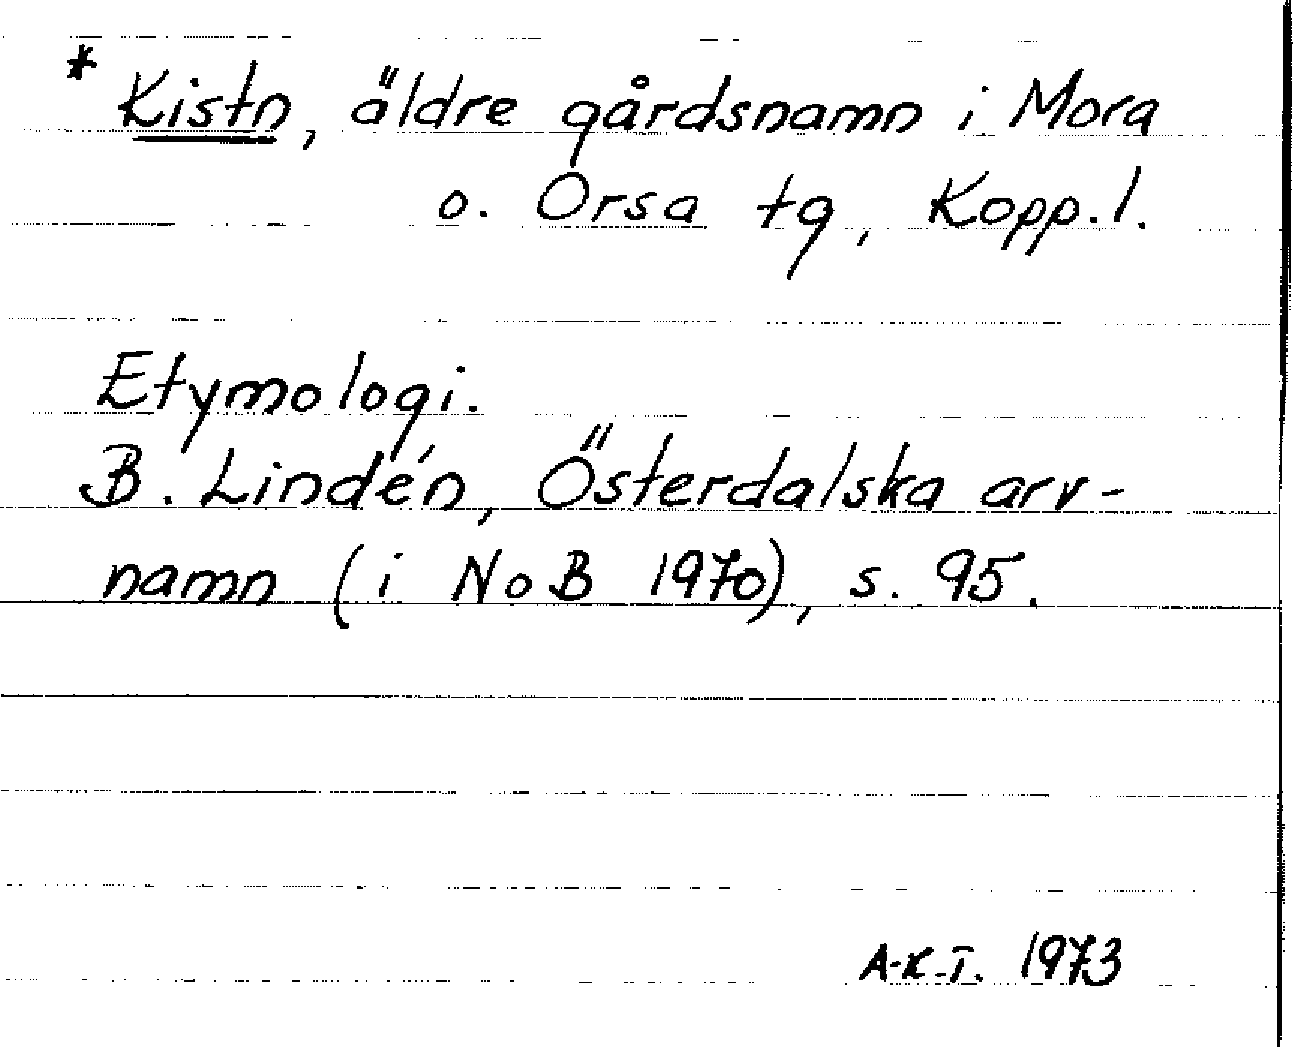 * Kistn, äldre gårdsnamn i Mora
o. Orsa tg, Kopp.l.
Etymologi.
B. Lindén, Österdalska arv-
namn (i NoB 1970), s. 95.
A-K.T. 1973